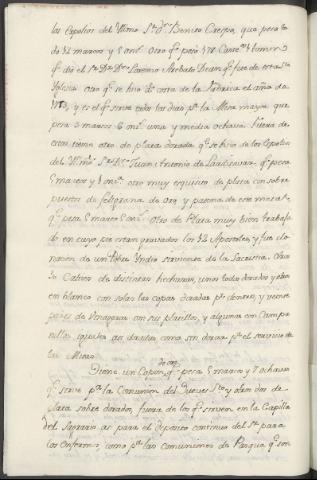 los Espolios del Illmo. Sor. Dr. Benito Crespo, que pesa
de 12 marcos y 5 onzs. Otro qe. pesó
qe. dió el Sr. Dr. Dn. Lorenzo Deán qe. fué de esta Sta.
Iglesia Otro qe. se hizo de cuenta de la Fabrica el año de
y es el qe. sirve todos los dias pa. la Missa mayor, que
pesa 3 marcos 6 ons. una y media ochava. Fuera de
estos tiene otro de plata dorada qe. se hizo de los Espolios
del Illmo. Sor. Dn. Juan Antonio de Lardizaval qe. pesa
5 marcos y onza. otro muy exquisito de plata con sobre
puestos de filigrana de Oro y patena de este metal
qe. pesa 5 marcs. 5 ons. Otro de Plata muy bien trabaja
do en cuyo pie estan gravados los 12 Apostoles, y fue do
nacion de un pobre Yndio sirviente de la Sacristia.
Calices de distintas hechuras, unos todos dorados, y otros
en blanco con solas las copas doradas pr. dentro, y veinte
pares de Vinageras con sus platillos, y algunas con Campa
nillas, iguales asi doradas como sin dorar pa. el servicio de
las Missas.
Tiene un Copon de oro qe. pesa 5 marcos y 7 ochavas
qe. sirve pa. la Comunion del Jueves Sto. y otros dos de
plata sobre dorados, fuera de los qe. sirven en la Capilla
del Sagrario asi para el deposito continuo del Sr. para
los Enfermos como pa. las comuniones de Pasqua qe. son